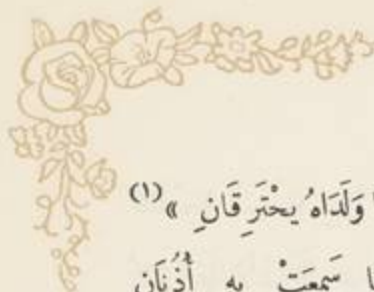 وَلَدَاهُ يحْتَرِقَانِ »(١)
سَمِعَتْ بِهِ أُذُنَانِ